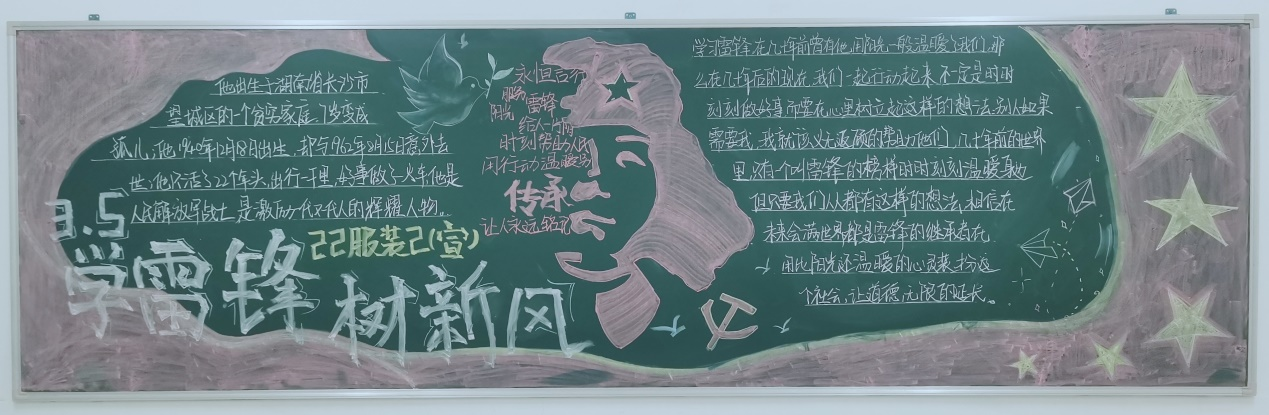 他出生于湖南省长沙市
望城区的一个贫穷家庭,7岁变成
孤儿,他1940年12月18日出生,却与1962年8月15日意外去
世;他只活了22个年头,出行一千里,好事做了一火车,他是
人民解放军战士,是激励一代又一代人的辉耀人物。
3.5
学雷锋
树新风
22服装2(宣)
永恒
雷锋
时刻帮助人民
用行动温暖
传承
让人永远铭记
学习雷锋,在几十年前曾有他,用阳光一般温暖了我们,那
么在几十年后的现在,我们一起行动起来,不一定是时时
刻刻做好事,而要在心里树立起这样的想法,别人如果
需要我,我就该义无返顾的帮助他们,几十年前的世界
里,只有一个叫雷锋的榜样时时刻刻温暖身边
但只要我们人人都有这样的想法,相信在
未来会满世界都是雷锋的继承者在
用比阳光还温暖的心灵来扮这
个社会,让道德无限的延长。